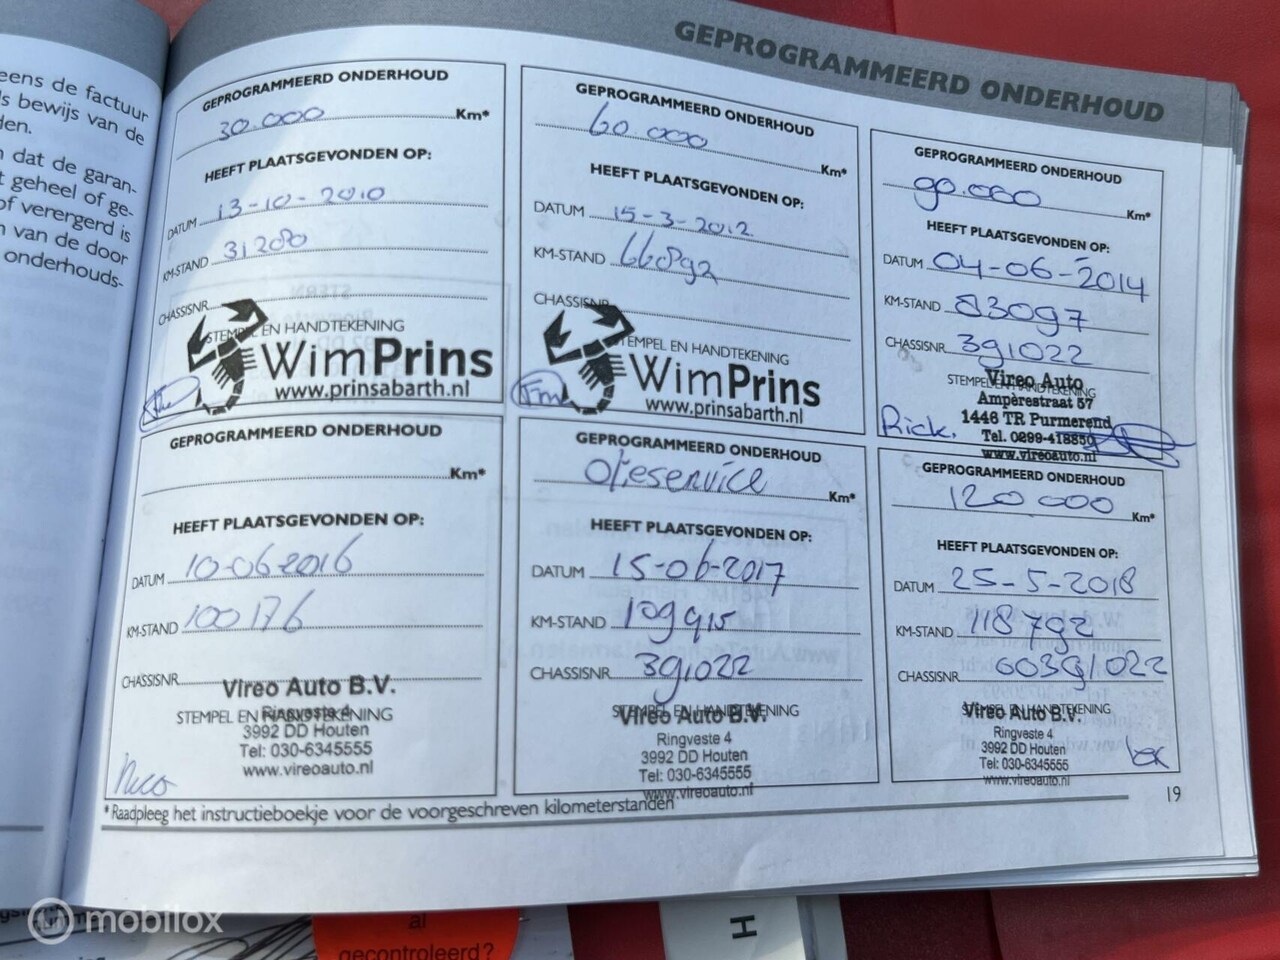 eens de factuur
ls bewijs van de
den.
n dat de garan-
t geheel of ge-
of verergerd is
n van de door
onderhouds-
GEPROGRAMMEERD ONDERHOUD
GEPROGRAMMEERD ONDERHOUD
30.000 Km*
HEEFT PLAATSGEVONDEN OP:
DATUM 13-10-2010
KM-STAND 31280
CHASSISNR.
STEMPEL EN HANDTEKENING
WimPrins
www.prinsabarth.nl
GEPROGRAMMEERD ONDERHOUD
60.000 Km*
HEEFT PLAATSGEVONDEN OP:
DATUM 15-3-2012
KM-STAND 66892
CHASSISNR
STEMPEL EN HANDTEKENING
WimPrins
www.prinsabarth.nl
GEPROGRAMMEERD ONDERHOUD
90.000 Km*
HEEFT PLAATSGEVONDEN OP:
DATUM 04-06-2014
KM-STAND 83097
CHASSISNR 391022
STEMPEL EN HANDTEKENING
Vireo Auto
Ampèrestraat 57
1446 TR Purmerend
Rick. Tel. 0299-418850
www.vireoauto.nl
GEPROGRAMMEERD ONDERHOUD
Km*
HEEFT PLAATSGEVONDEN OP:
DATUM 10-06-2016
KM-STAND 100176
CHASSISNR
Vireo Auto B.V.
STEMPEL EN HANDTEKENING
Ringveste 4
3992 DD Houten
Tel: 030-6345555
www.vireoauto.nl
Nico
GEPROGRAMMEERD ONDERHOUD
Olieservice Km*
HEEFT PLAATSGEVONDEN OP:
DATUM 15-06-2017
KM-STAND 109915
CHASSISNR 391022
STEMPEL EN HANDTEKENING
Vireo Auto B.V.
Ringveste 4
3992 DD Houten
Tel: 030-6345555
www.vireoauto.nl
GEPROGRAMMEERD ONDERHOUD
120.000 Km*
HEEFT PLAATSGEVONDEN OP:
DATUM 25-5-2018
KM-STAND 118792
CHASSISNR 60391022
STEMPEL EN HANDTEKENING
Vireo Auto B.V.
Ringveste 4
3992 DD Houten
Tel: 030-6345555
www.vireoauto.nl
* Raadpleeg het instructieboekje voor de voorgeschreven kilometerstanden
19
mobilox
al
gecontroleerd?
H